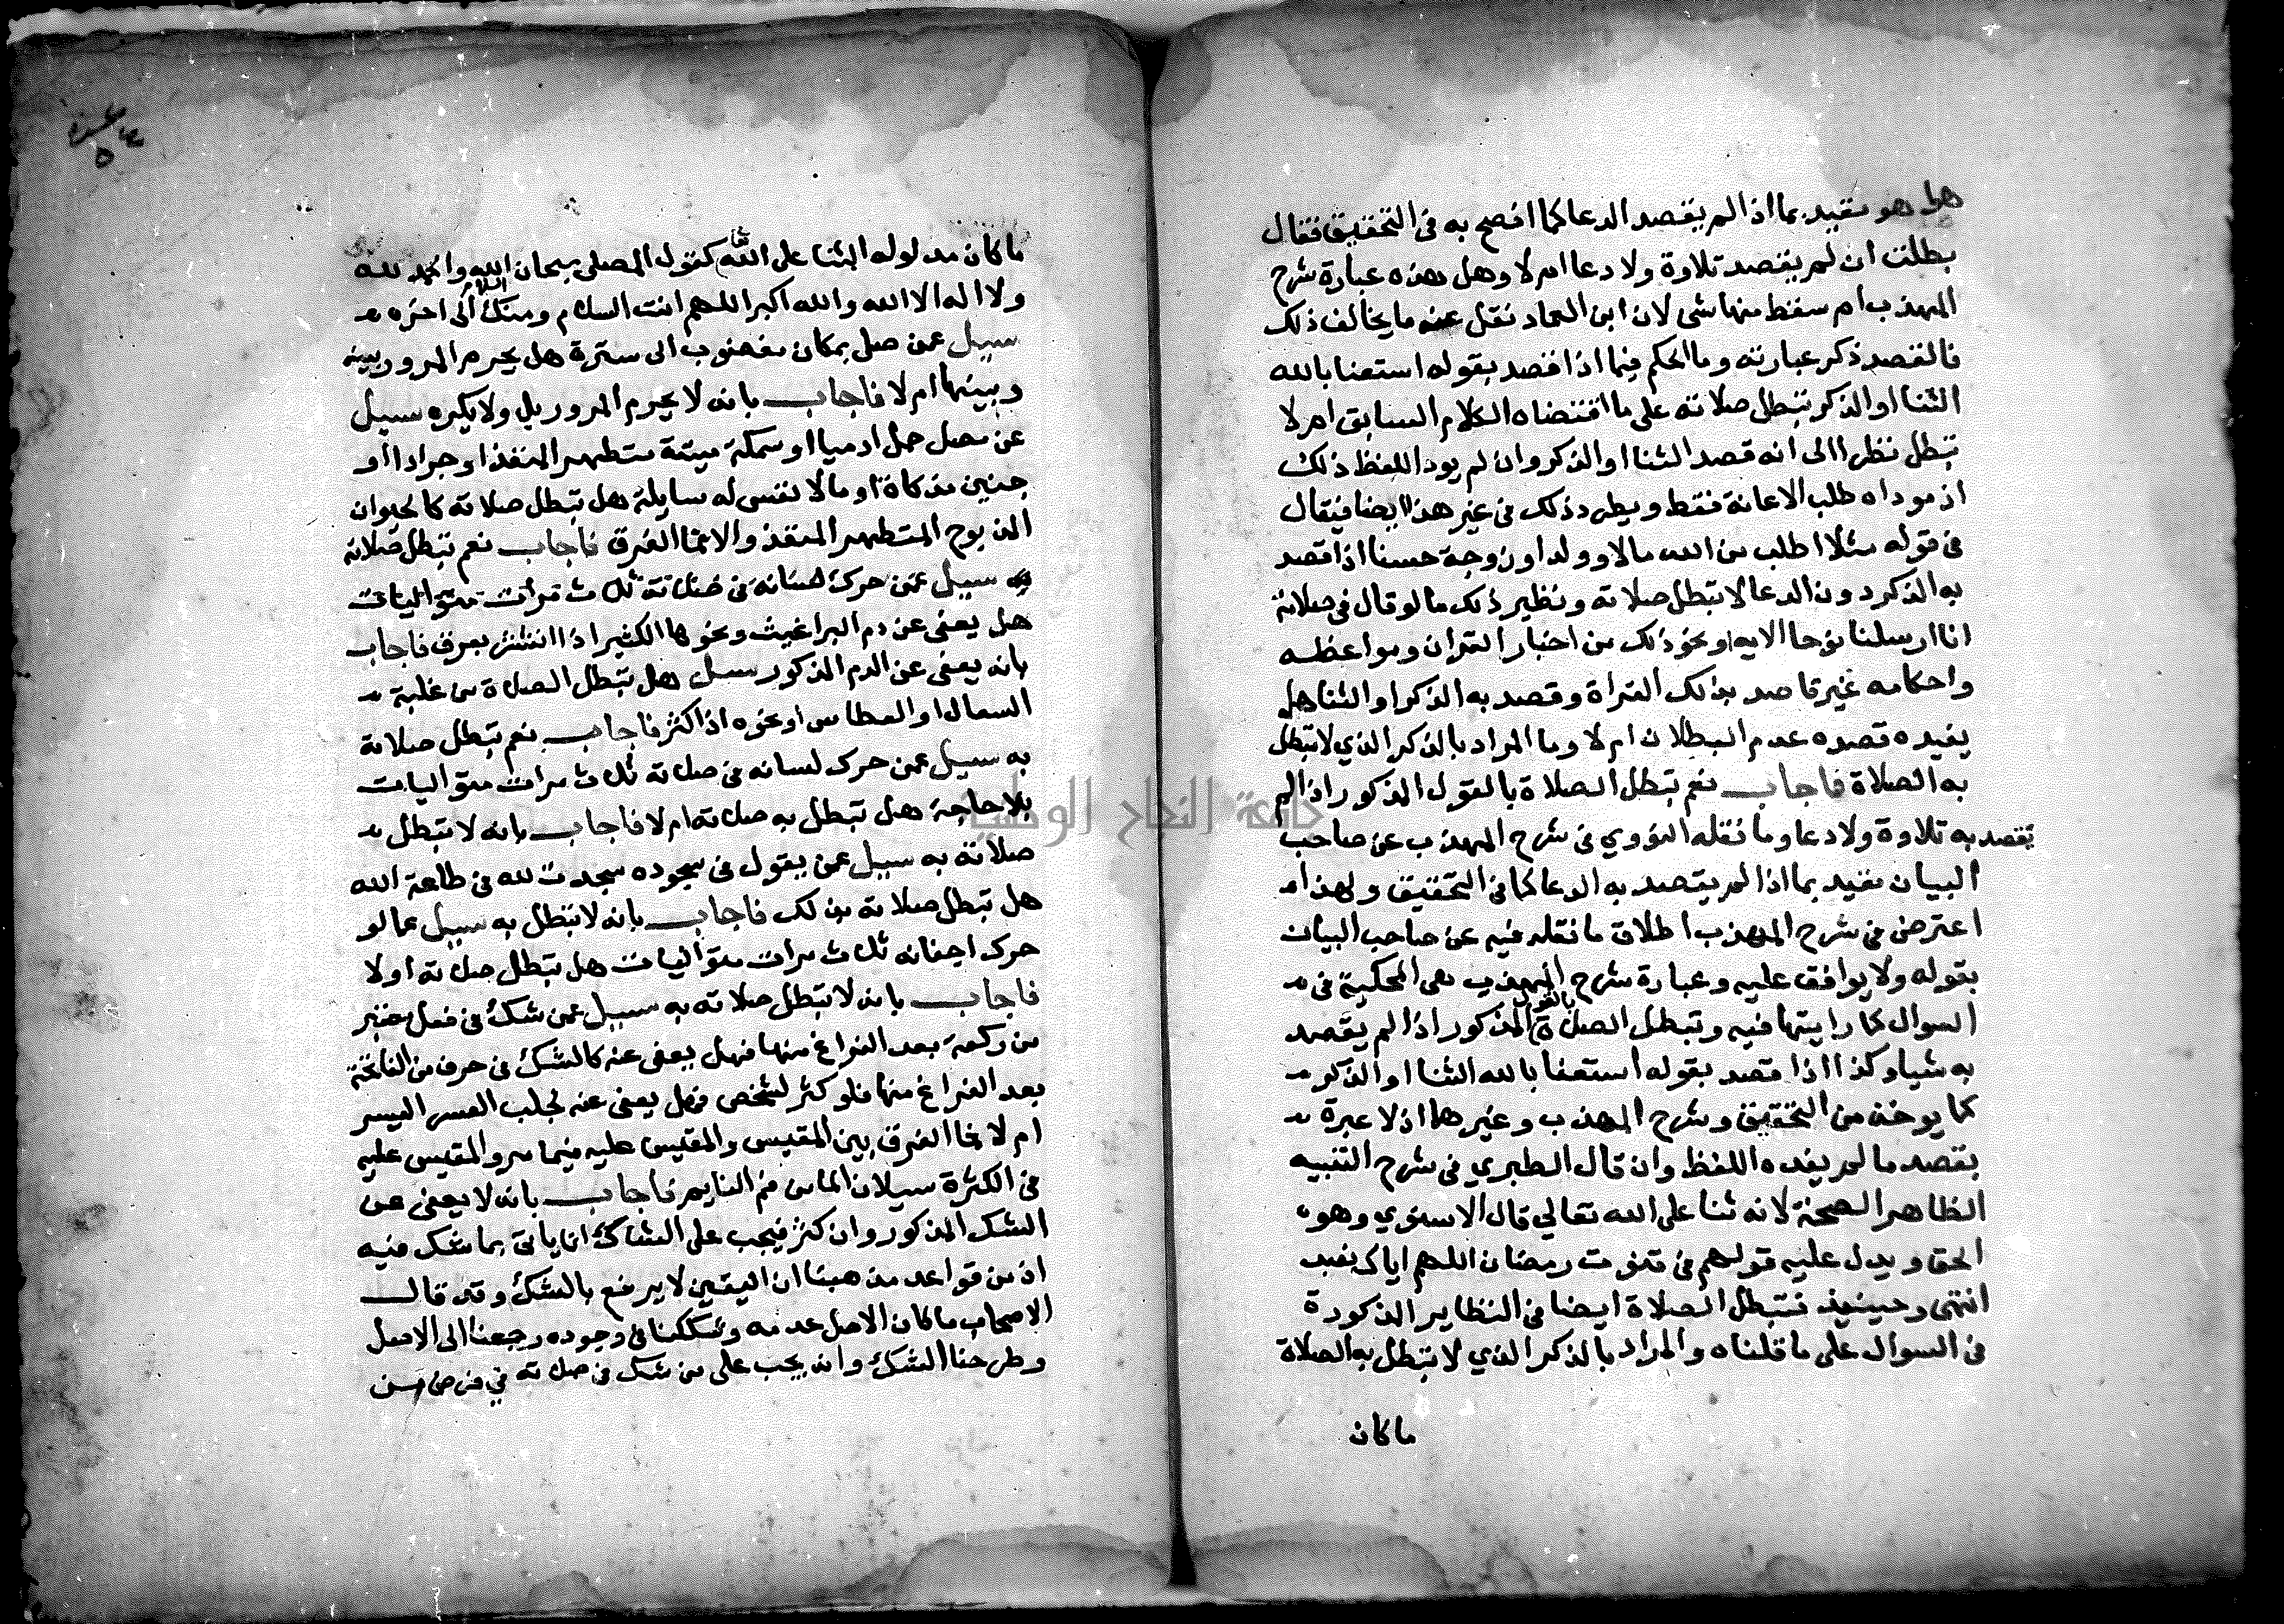 هل هو مقيد بما اذا لم يقصد الدعا كما افصح به في التحقيق فقال
بطلت ان لم يقصد تلاوة ولا دعا ام لا وهل هذه عبارة شرح
المهذب ام سقط منها شي لان ابن العماد نقل عنه ما يخالف ذلك
فالقصد ذكر عبارته وما الحكم فيما اذا قصد بقوله استعنا بالله
الثنا او الذكر تبطل صلاته على ما اقتضاه الكلام السابق ام لا
تبطل نظرا الى انه قصد الثنا او الذكر وان لم يود اللفظ ذلك
اذ موداه طلب الاعانة فقط ويطرد ذلك في غير هذا ايضا فيقال
في قوله مثلا اطلب من الله مالا وولدا وزوجة حسنا اذا قصد
به الذكر دون الدعا لا تبطل صلاته ونظير ذلك ما لو قال في صلاته
انا ارسلنا نوحا الاية او نحو ذلك من اخبار القران ومواعظه
واحكامه غير قاصد بذلك القراة وقصد به الذكر او الثنا هل
يفيده قصده عدم البطلان ام لا وما المراد بالذكر الذي لا تبطل
به الصلاة فاجاب نعم تبطل الصلاة بالقول المذكور اذا لم
يقصد به تلاوة ولا دعا وما نقله النووي في شرح المهذب عن صاحب
البيان مقيد بما اذا لم يقصد به الدعا كما في التحقيق ولهذا
اعترض في شرح المهذب اطلاق ما نقله فيه عن صاحب البيان
بقوله ولا يوافق عليه وعبارة شرح المهذب هي المحكية في
السوال كما رايتها فيه وتبطل الصلاة بالقول المذكور اذا لم يقصد
به شيا وكذا اذا قصد بقوله استعنا بالله الثنا او الذكر
كما يوخذ من التحقيق وشرح المهذب وغيرهما اذ لا عبرة
بقصد ما لم يفده اللفظ وان قال الطبري في شرح التنبيه
الظاهر الصحة لانه ثنا على الله تعالي قال الاسنوي وهو
الحق ويدل عليه قولهم في قنوت رمضان اللهم اياك نعبد
انتهى وحينيذ فتبطل الصلاة ايضا في النظاير المذكورة
في السوال على ما قلناه والمراد بالذكر الذي لا تبطل به الصلاة
ما كان
ما كان مدلوله الثنا على الله كقوله المصلى سبحان الله والحمد لله
ولا اله الا الله والله اكبر اللهم انت السلام ومنك السلام الى اخره
سيل عمن صلى بمكان مغصوب الى سترة هل يحرم المرور بينه
وبينها ام لا فاجاب بانه لا يحرم المرور بل ولا يكره سيل
عن مصل حمل ادميا او سمكة ميتة متطهر المنفذ او جرادا او
جنين مذكاة او ما لا نفس له سايلة هل تبطل صلاته كالحيوان
المذبوح المتطهر المنفذ والا فما الفرق فاجاب نعم تبطل صلاته
به سيل عمن حرك لسانه في صلاته ثلاث مرات متواليات
هل يعفى عن دم البراغيث ونحوها الكثير اذا انتشر بعرق فاجاب
بانه يعفى عن الدم المذكور سيل هل تبطل الصلاة من غلبة
السعال او العطاس او نحوه اذا كثر فاجاب نعم تبطل صلاته
به سيل عمن حرك لسانه في صلاته ثلاث مرات متواليات
بلا حاجة هل تبطل به صلاته ام لا فاجاب بانه لا تبطل
صلاته به سيل عمن يقول في سجوده سجدت لله في طاعة الله
هل تبطل صلاته بذلك فاجاب بانه لا تبطل به سيل عما لو
حرك اجفانه ثلاث مرات متواليات هل تبطل صلاته او لا
فاجاب بانه لا تبطل صلاته به سيل عمن شك في فعل
من ركعة بعد الفراغ منها فهل يعفى عنه كالشك في حرف من الفاتحة
بعد الفراغ منها فلو كثر لشخص فهل يعفى عنه لجلب العسر اليسر
ام لا فما الفرق بين المقيس والمقيس عليه فيما مر والمقيس عليه
في الكثرة سيلان الما من فم النايم فاجاب بانه لا يعفى عن
الشك المذكور وان كثر فيجب على الشاك ان ياتى بما شك فيه
اذ من قواعد مذهبنا ان اليقين لا يرفع بالشك وقد قال
الاصحاب ما كان الاصل عدمه وشككنا في وجوده رجعنا الى الاصل
وطرحنا الشك وانه يجب على من شك في صلاته في فرض من
جامعة النجاح الوطنية